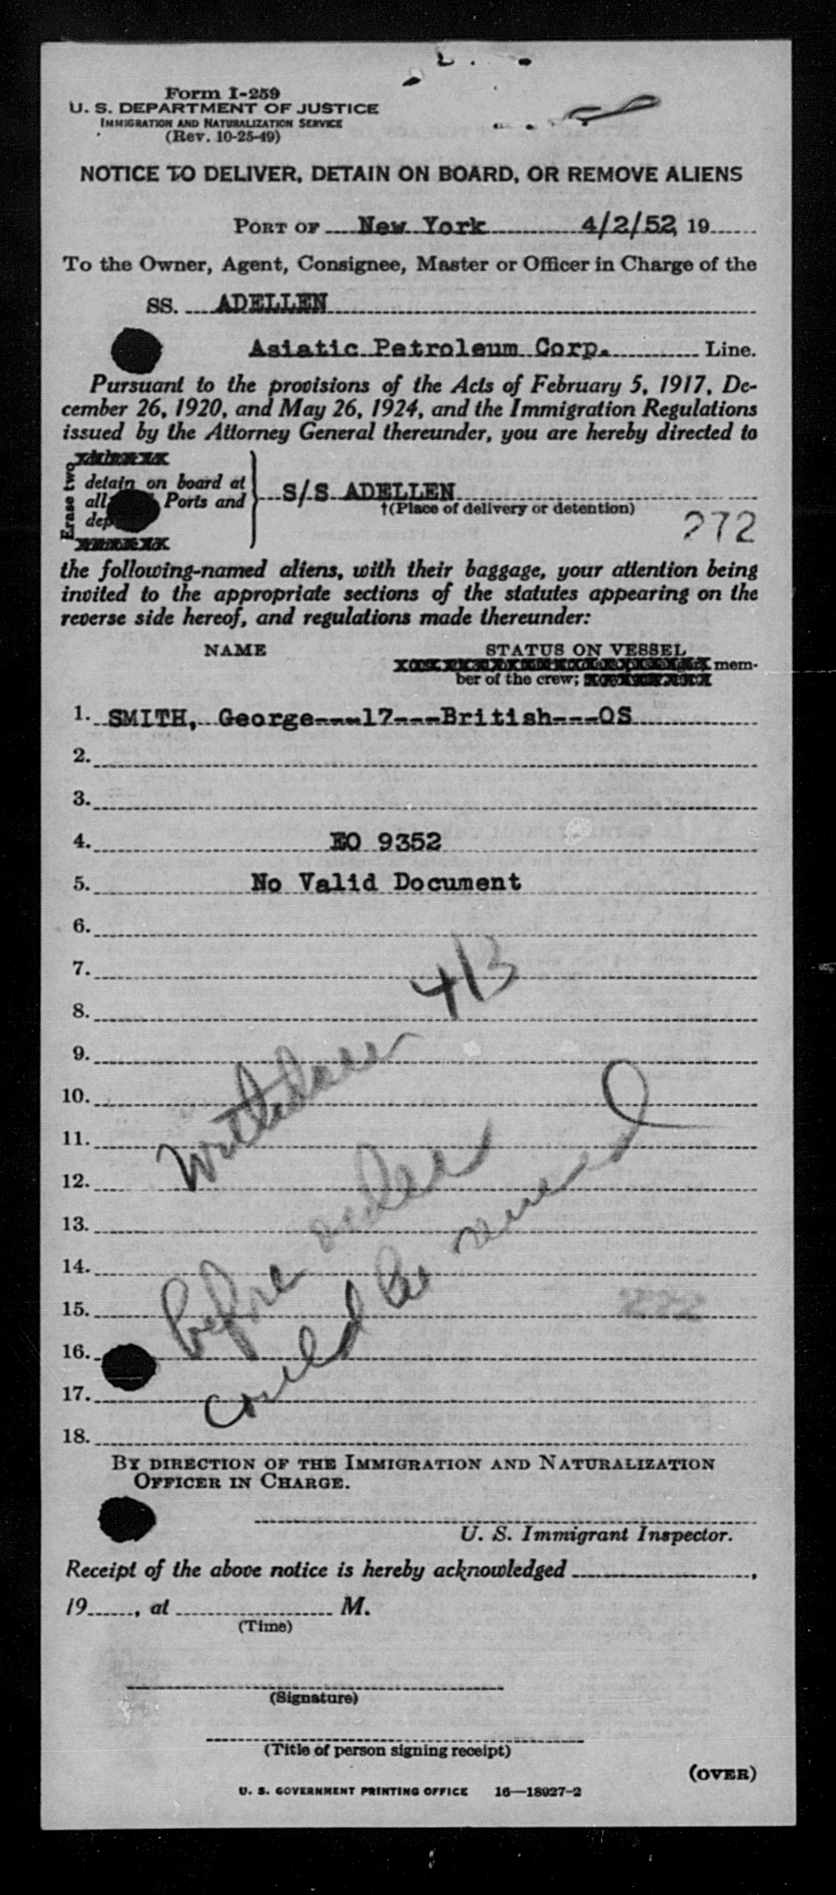 Form I-259
U. S. DEPARTMENT OF JUSTICE
IMMIGRATION AND NATURALIZATION SERVICE
(Rev. 10-25-49)
NOTICE TO DELIVER, DETAIN ON BOARD, OR REMOVE ALIENS
PORT OF New York 4/2/52, 19
To the Owner, Agent, Consignee, Master or Officer in Charge of the
SS. ADELLEN
Asiatic Petroleum Corp. Line.
Pursuant to the provisions of the Acts of February 5, 1917, De-
cember 26, 1920, and May 26, 1924, and the Immigration Regulations
issued by the Attorney General thereunder, you are hereby directed to
Erase two
detain on board at
all Ports and
S/S ADELLEN
†(Place of delivery or detention)
272
the following-named aliens, with their baggage, your attention being
invited to the appropriate sections of the statutes appearing on the
reverse side hereof, and regulations made thereunder:
NAME STATUS ON VESSEL
mem-
ber of the crew;
1. SMITH, George---17---British---OS
2.
3.
4. EO 9352
5. No Valid Document
6.
7. 4/3
8.
9.
10.
11.
12.
13.
14.
15.
16.
17.
18.
before
could be
BY DIRECTION OF THE IMMIGRATION AND NATURALIZATION
OFFICER IN CHARGE.
U. S. Immigrant Inspector.
Receipt of the above notice is hereby acknowledged ,
19 , at M.
(Time)
(Signature)
(Title of person signing receipt)
(OVER)
U. S. GOVERNMENT PRINTING OFFICE 16—18927-2